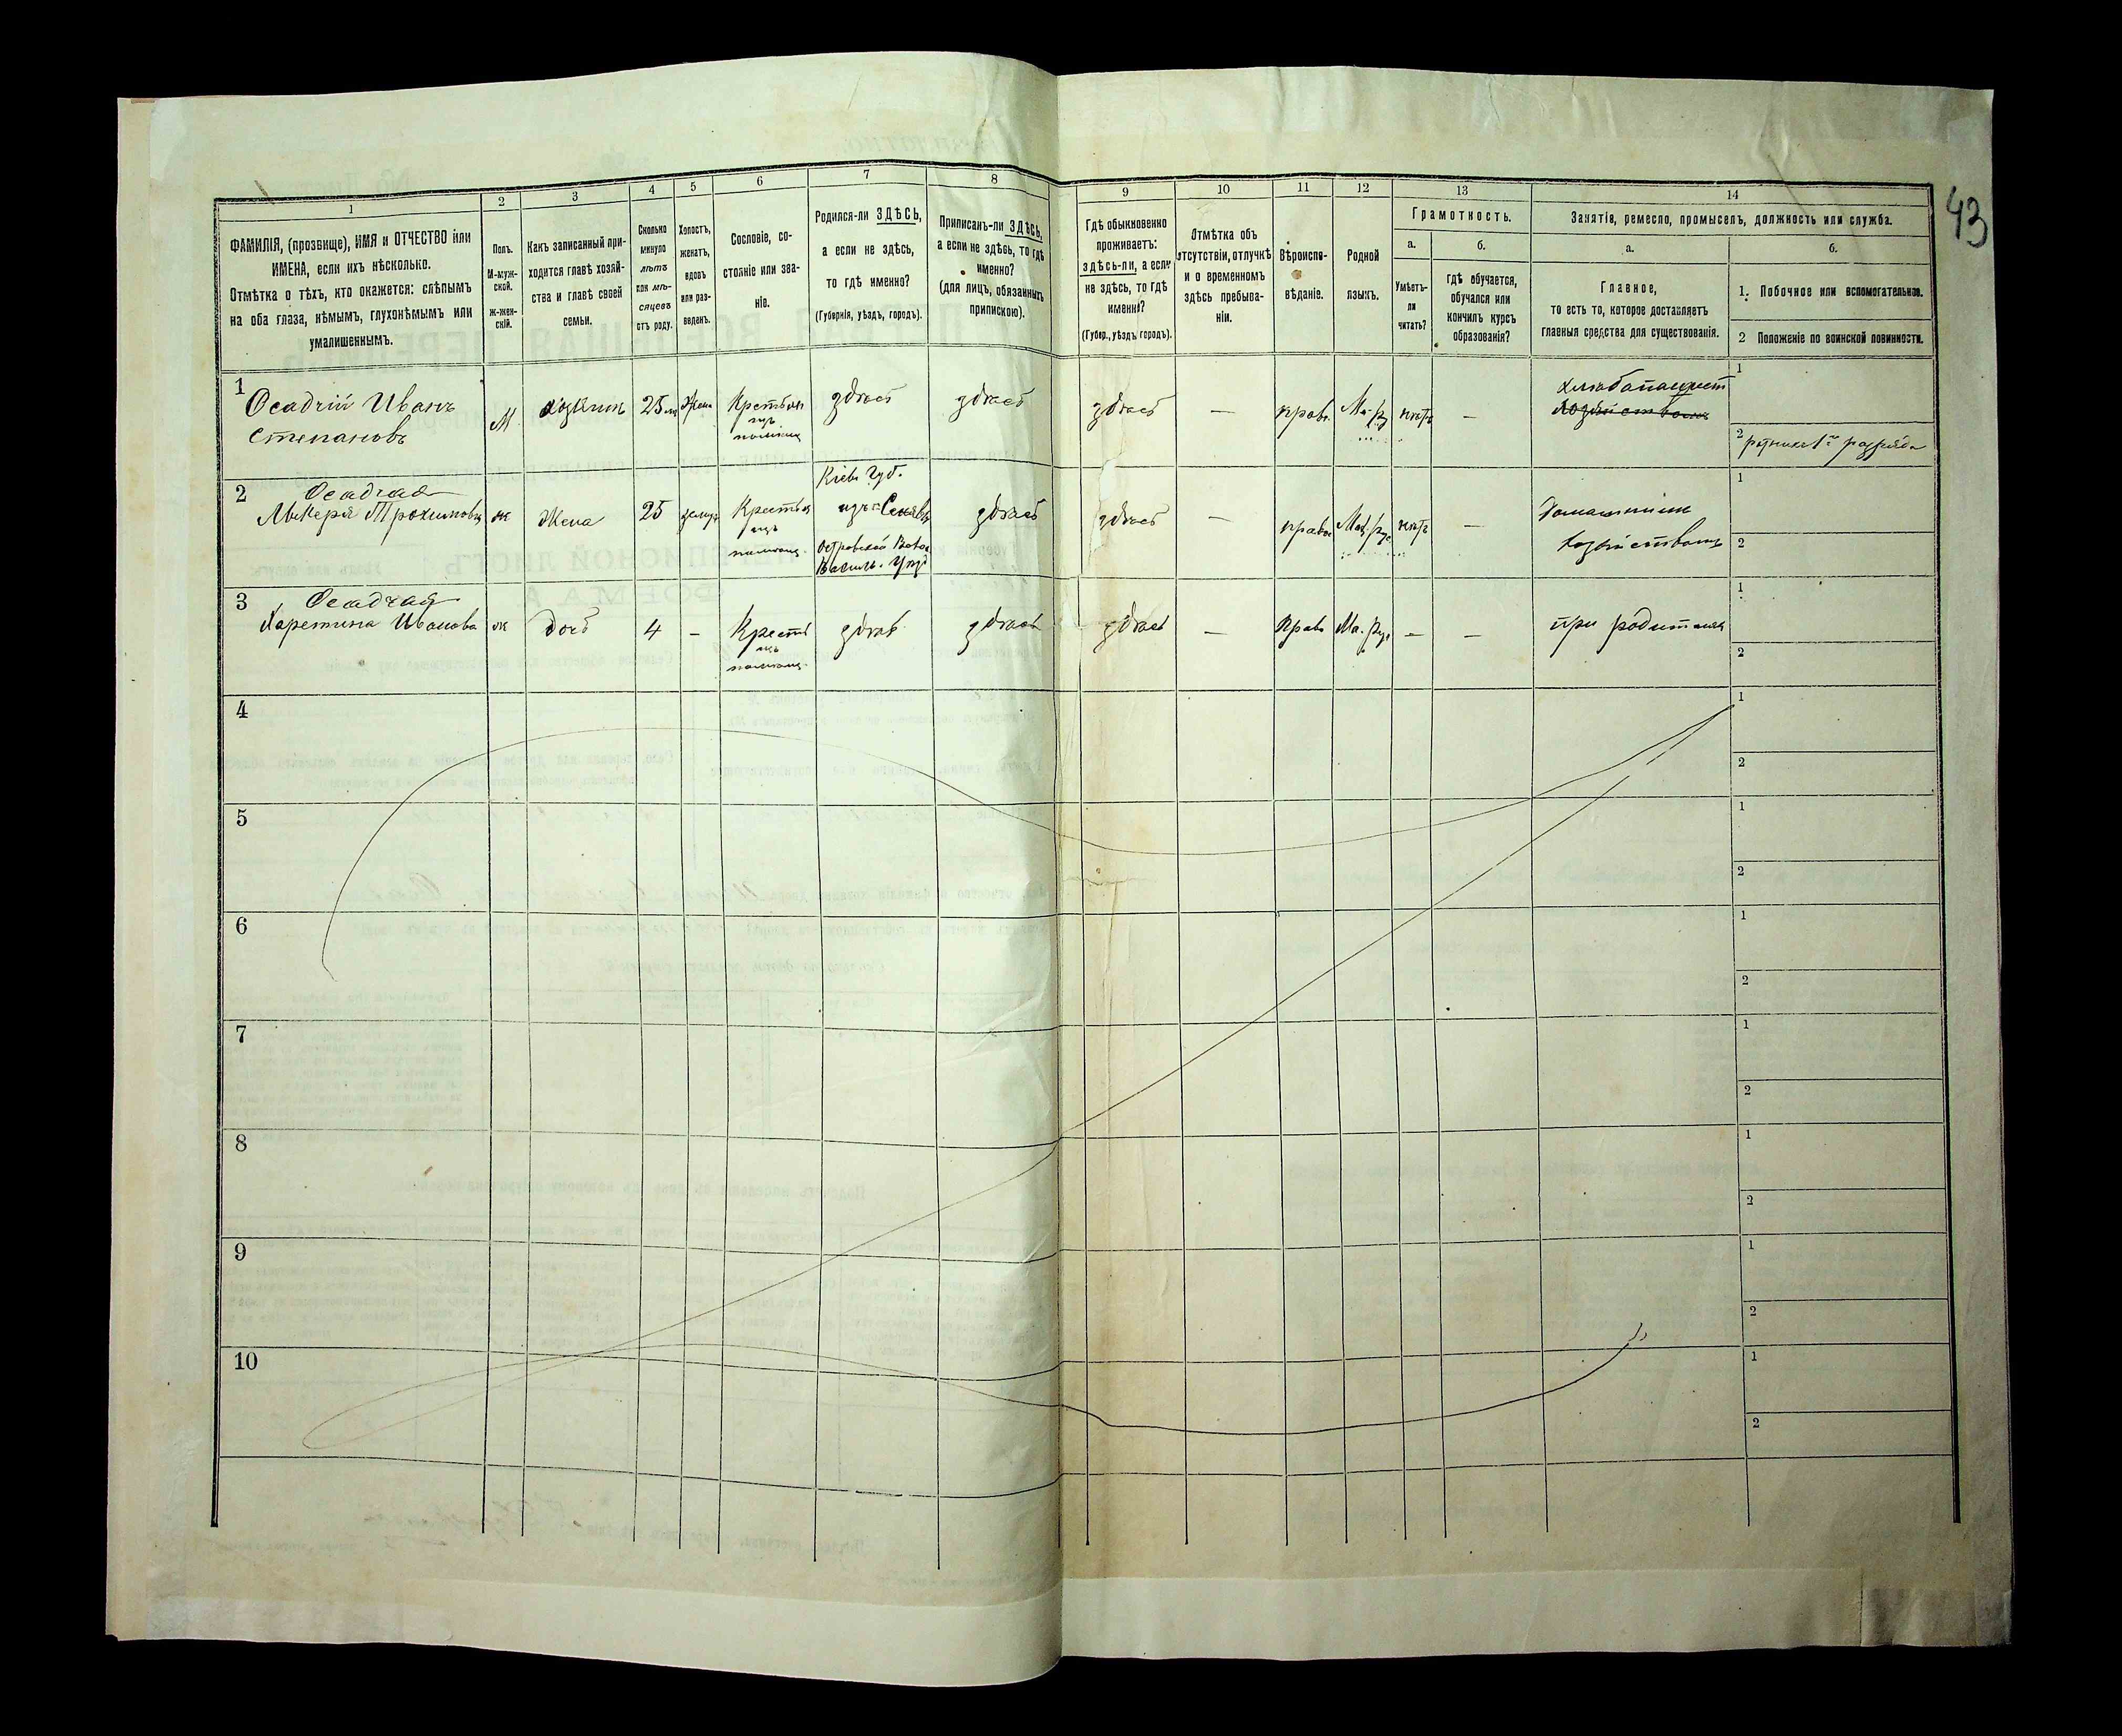 43
1
2
3
4
5
6
7
8
9
10
11
12
13
14
ФАМИЛІЯ, (прозвище), ИМЯ и ОТЧЕСТВО или
ИМЕНА, если ихъ нѣсколько.
Отмѣтка о тѣхъ, кто окажется: слѣпымъ
на оба глаза, нѣмымъ, глухонѣмымъ или
умалишеннымъ.
Полъ.
М-муж-
ской.
Ж-жен-
скій.
Какъ записанный при-
ходится главѣ хозяй-
ства и главѣ своей
семьи.
Сколько
минуло
лѣтъ
или мѣ-
сяцевъ
отъ роду.
Холостъ,
женатъ,
вдовъ
или раз-
веденъ.
Сословіе, со-
стояніе или зва-
ніе.
Родился-ли ЗДѢСЬ,
а если не здѣсь,
то гдѣ именно?
(Губернія, уѣздъ, городъ).
Приписанъ-ли ЗДѢСЬ,
а если не здѣсь, то гдѣ
именно?
(для лицъ, обязанныхъ
припиской).
Гдѣ обыкновенно
проживаетъ:
здѣсь-ли, а если
не здѣсь, то гдѣ
именно?
(Губер., уѣздъ городъ).
Отмѣтка объ
отсутствіи, отлучкѣ
и о временномъ
здѣсь пребыва-
ніи.
Вѣроиспо-
вѣданіе.
Родной
языкъ.
Грамотность.
а.
б.
Умѣетъ-
ли
читать?
Гдѣ обучается,
обучался или
кончилъ курсъ
образованія?
Занятія, ремесло, промыселъ, должность или служба.
а.
б.
Главное,
то есть то, которое доставляетъ
главныя средства для существованія.
1. Побочное или вспомогательное.
2 Положеніе по воинской повинности.
1
Осадчій Иванъ
Степановъ
М
хозяинъ
25
Крестьян
изъ
здѣсь
здѣсь
здѣсь
—
прав.
нѣтъ
—
1
2 ратникъ 1го разряда
2
Осадчая
Трохимовна
ж
Жена
25
Крестьян
изъ
Кіев. Губ.
Василь. Уѣзд
здѣсь
здѣсь
—
прав
нѣтъ
—
1
2
3
Осадчая
Иванова
ж
дочь
4
-
Крестя
изъ
здѣсь
здѣсь
здѣсь
—
Прав
-
—
при родителях
1
2
4
1
2
5
1
2
6
1
2
7
1
2
8
1
2
9
1
2
10
1
2